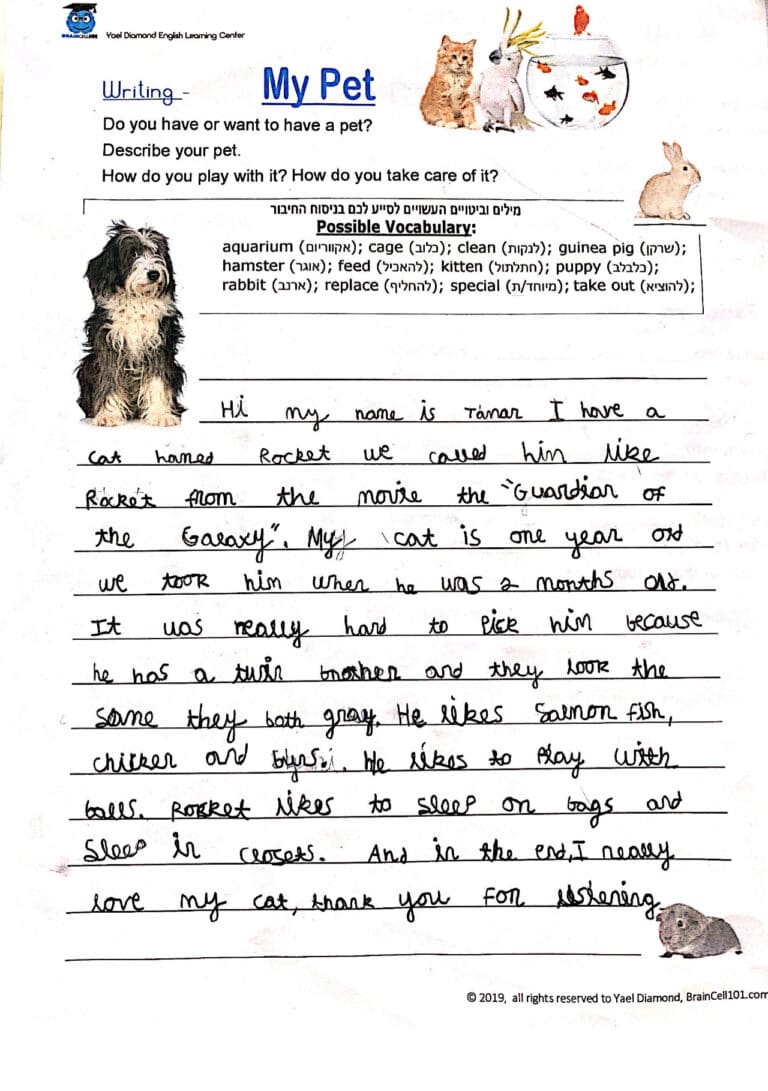 BRAINCELL101 Yael Diamond English Learning Center
Writing - My Pet
Do you have or want to have a pet?
Describe your pet.
How do you play with it? How do you take care of it?
מילים וביטויים העשויים לסייע לכם בניסוח החיבור
Possible Vocabulary:
aquarium (אקווריום); cage (כלוב); clean (לנקות); guinea pig (שרקן);
hamster (אוגר); feed (להאכיל); kitten (חתלתול); puppy (כלבלב);
rabbit (ארנב); replace (להחליף); special (מיוחד/ת); take out (להוציא);
Hi my name is Tamar I have a
cat named Rocket we called him like
Rocket from the movie the "Guardian of
the Galaxy". My cat is one year old
we took him when he was 2 months old.
It was really hard to pick him because
he has a twin brother and they look the
same they both gray. He likes Salmon fish,
chicken and . He likes to play with
balls. Rocket likes to sleep on bags and
sleep in closets. And in the end, I really
love my cat, thank you for listening
© 2019, all rights reserved to Yael Diamond, BrainCell101.com